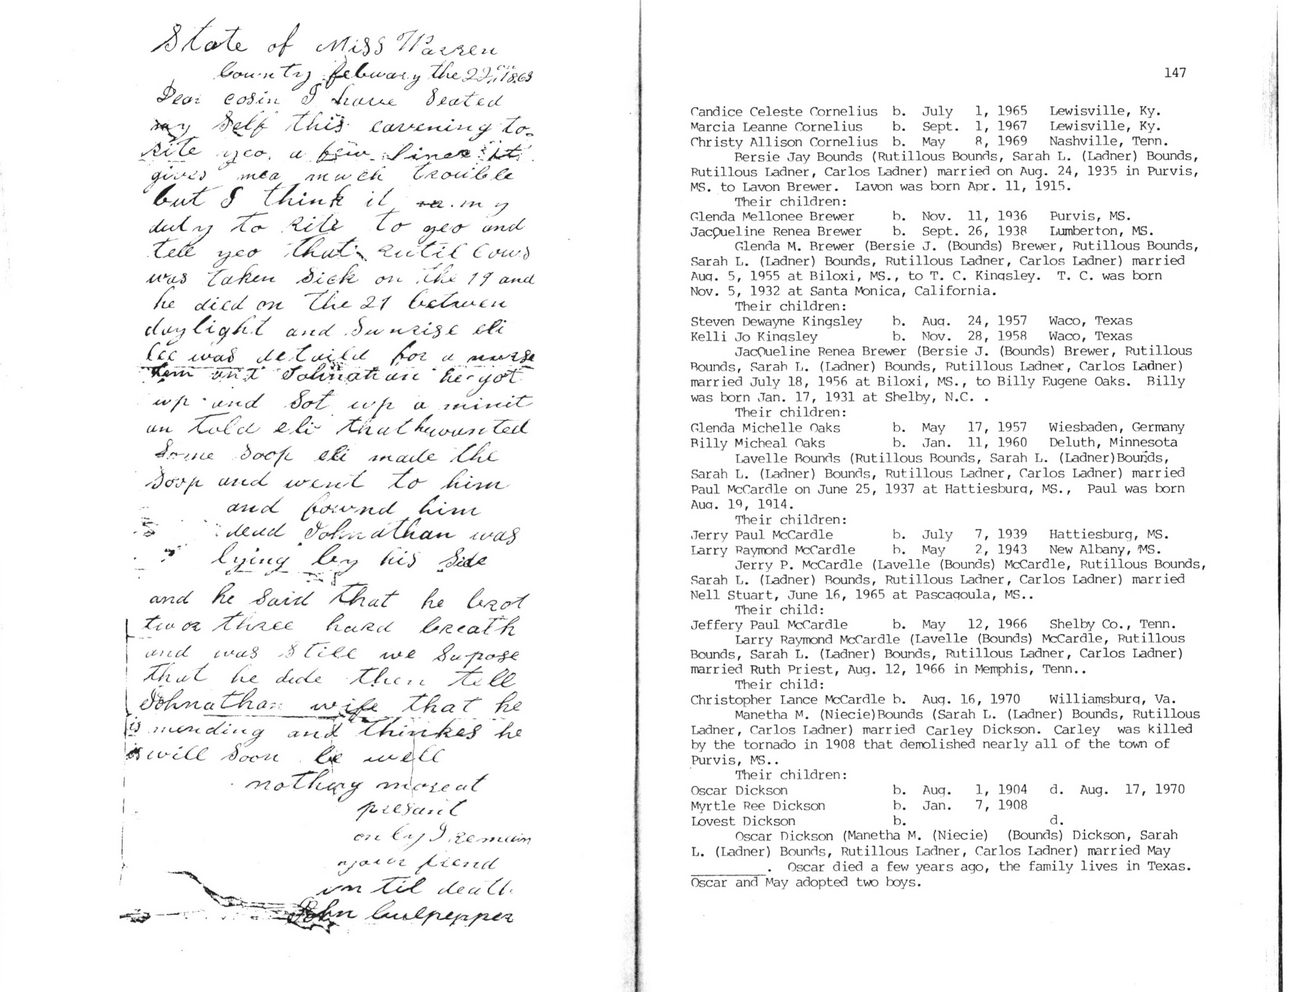 State of Miss Warren
County febuary the 22, 1863
Dear cosin I have seated
my self this eavening to
rite yeo a few lines it
gives mea much trouble
but I think it my
duty to rite to yeo and
tell yeo that
was taken sick on the 19 and
he died on the 21 between
daylight and sunrise eli
lee was detaild for a nurse
and Johnathan he got
up and sot up a minit
an told eli that he wanted
some soop eli made the
soop and went to him
and fownd him
dead Johnathan was
lying by his side
and he said that he brot
two or three hard breath
and was still we supose
that he dide then tell
Johnathan wife that he
is mending and thinkes he
will soon be well
nothing more at
presant
only I remain
your friend
un til death
John Culpepper
147
Candice Celeste Cornelius b. July 1, 1965 Lewisville, Ky.
Marcia Leanne Cornelius b. Sept. 1, 1967 Lewisville, Ky.
Christy Allison Cornelius b. May 8, 1969 Nashville, Tenn.
Bersie Jay Bounds (Rutillous Bounds, Sarah L. (Ladner) Bounds,
Rutillous Ladner, Carlos Ladner) married on Aug. 24, 1935 in Purvis,
MS. to Lavon Brewer. Lavon was born Apr. 11, 1915.
Their children:
Glenda Mellonee Brewer b. Nov. 11, 1936 Purvis, MS.
JacQueline Renea Brewer b. Sept. 26, 1938 Lumberton, MS.
Glenda M. Brewer (Bersie J. (Bounds) Brewer, Rutillous Bounds,
Sarah L. (Ladner) Bounds, Rutillous Ladner, Carlos Ladner) married
Aug. 5, 1955 at Biloxi, MS., to T. C. Kingsley. T. C. was born
Nov. 5, 1932 at Santa Monica, California.
Their children:
Steven Dewayne Kingsley b. Aug. 24, 1957 Waco, Texas
Kelli Jo Kingsley b. Nov. 28, 1958 Waco, Texas
JacQueline Renea Brewer (Bersie J. (Bounds) Brewer, Rutillous
Bounds, Sarah L. (Ladner) Bounds, Rutillous Ladner, Carlos Ladner)
married July 18, 1956 at Biloxi, MS., to Billy Eugene Oaks. Billy
was born Jan. 17, 1931 at Shelby, N.C. .
Their children:
Glenda Michelle Oaks b. May 17, 1957 Wiesbaden, Germany
Billy Micheal Oaks b. Jan. 11, 1960 Deluth, Minnesota
Lavelle Bounds (Rutillous Bounds, Sarah L. (Ladner)Bounds,
Sarah L. (Ladner) Bounds, Rutillous Ladner, Carlos Ladner) married
Paul McCardle on June 25, 1937 at Hattiesburg, MS., Paul was born
Aug. 19, 1914.
Their children:
Jerry Paul McCardle b. July 7, 1939 Hattiesburg, MS.
Larry Raymond McCardle b. May 2, 1943 New Albany, MS.
Jerry P. McCardle (Lavelle (Bounds) McCardle, Rutillous Bounds,
Sarah L. (Ladner) Bounds, Rutillous Ladner, Carlos Ladner) married
Nell Stuart, June 16, 1965 at Pascagoula, MS..
Their child:
Jeffery Paul McCardle b. May 12, 1966 Shelby Co., Tenn.
Larry Raymond McCardle (Lavelle (Bounds) McCardle, Rutillous
Bounds, Sarah L. (Ladner) Bounds, Rutillous Ladner, Carlos Ladner)
married Ruth Priest, Aug. 12, 1966 in Memphis, Tenn..
Their child:
Christopher Lance McCardle b. Aug. 16, 1970 Williamsburg, Va.
Manetha M. (Niecie)Bounds (Sarah L. (Ladner) Bounds, Rutillous
Ladner, Carlos Ladner) married Carley Dickson. Carley was killed
by the tornado in 1908 that demolished nearly all of the town of
Purvis, MS..
Their children:
Oscar Dickson b. Aug. 1, 1904 d. Aug. 17, 1970
Myrtle Ree Dickson b. Jan. 7, 1908
Lovest Dickson b. d.
Oscar Dickson (Manetha M. (Niecie) (Bounds) Dickson, Sarah
L. (Ladner) Bounds, Rutillous Ladner, Carlos Ladner) married May
__________. Oscar died a few years ago, the family lives in Texas.
Oscar and May adopted two boys.